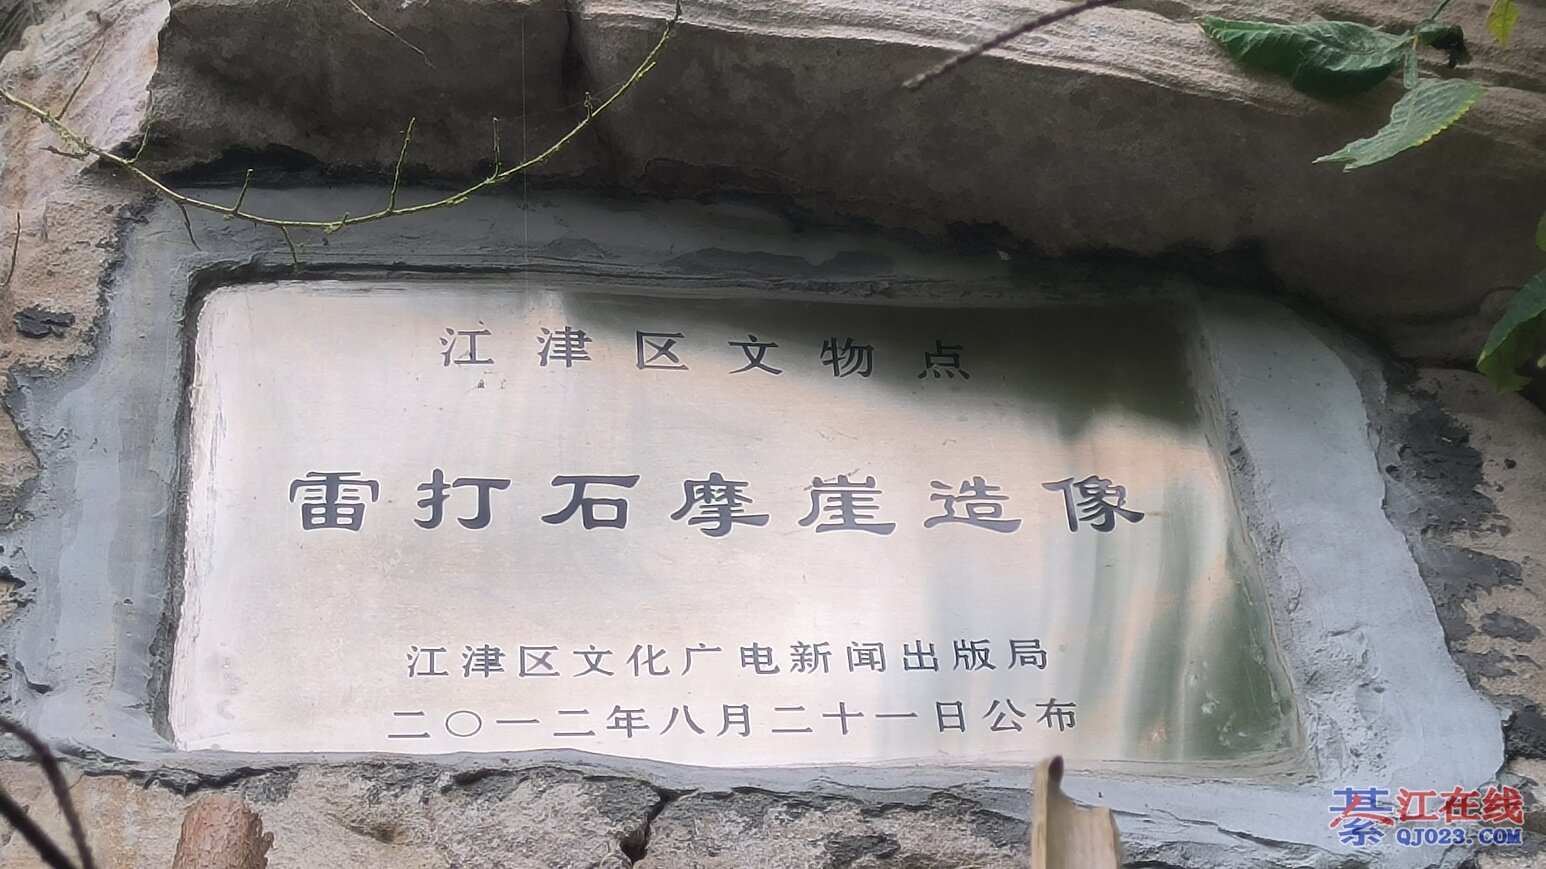 江津区文物点
雷打石摩崖造像
江津区文化广电新闻出版局
二〇一二年八月二十一日公布
綦江在线
QJ023.COM